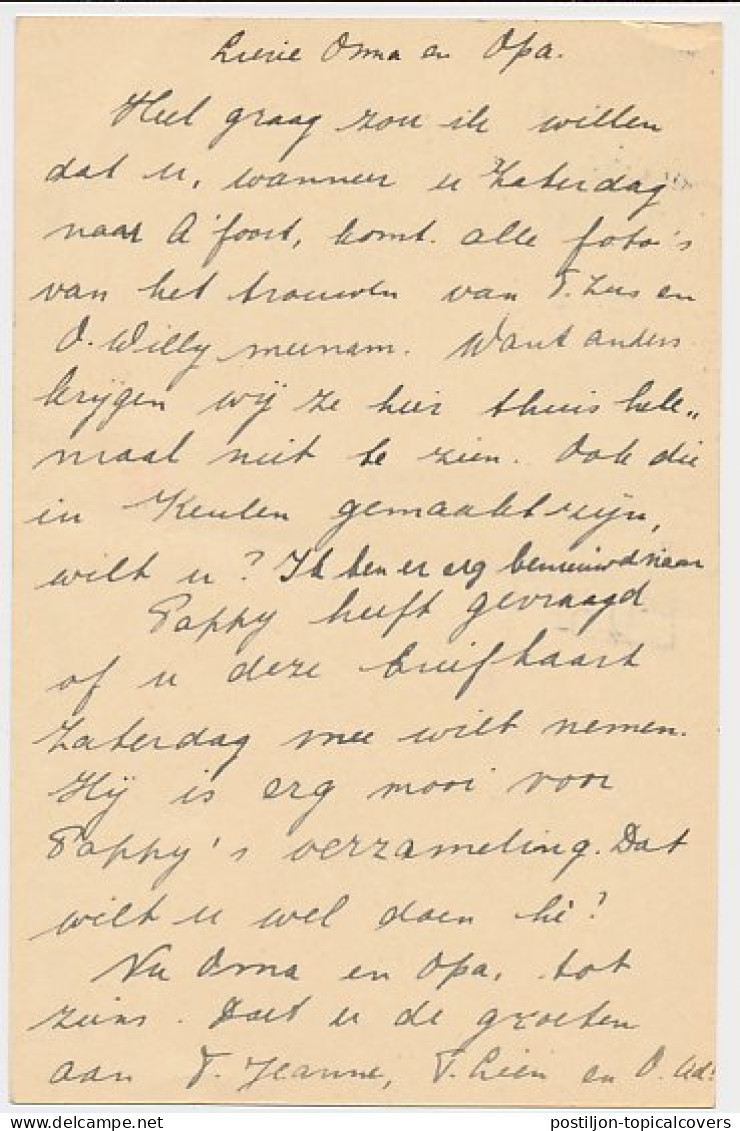 Lieve Oma en Opa.
Heel graag zou ik willen
dat u, wanneer u Zaterdag
naar A'foort, komt. alle foto's
van het trouwen van T. Zus en
O. Willy meenam. Want anders
krijgen wij ze hier thuis hele„
maal niet te zien. Ook die
in Keulen gemaakt zijn,
wilt u? Ik ben er erg benieuwd naar
Pappy heeft gevraagd
of u deze briefkaart
Zaterdag mee wilt nemen.
Hij is erg mooi voor
Pappy's verzameling. Dat
wilt u wel doen hè?
Nu Oma en Opa, tot
ziens. Doet u de groeten
aan T. Jeanne, T. Lien en O. Ad!
postiljon-topicalcovers